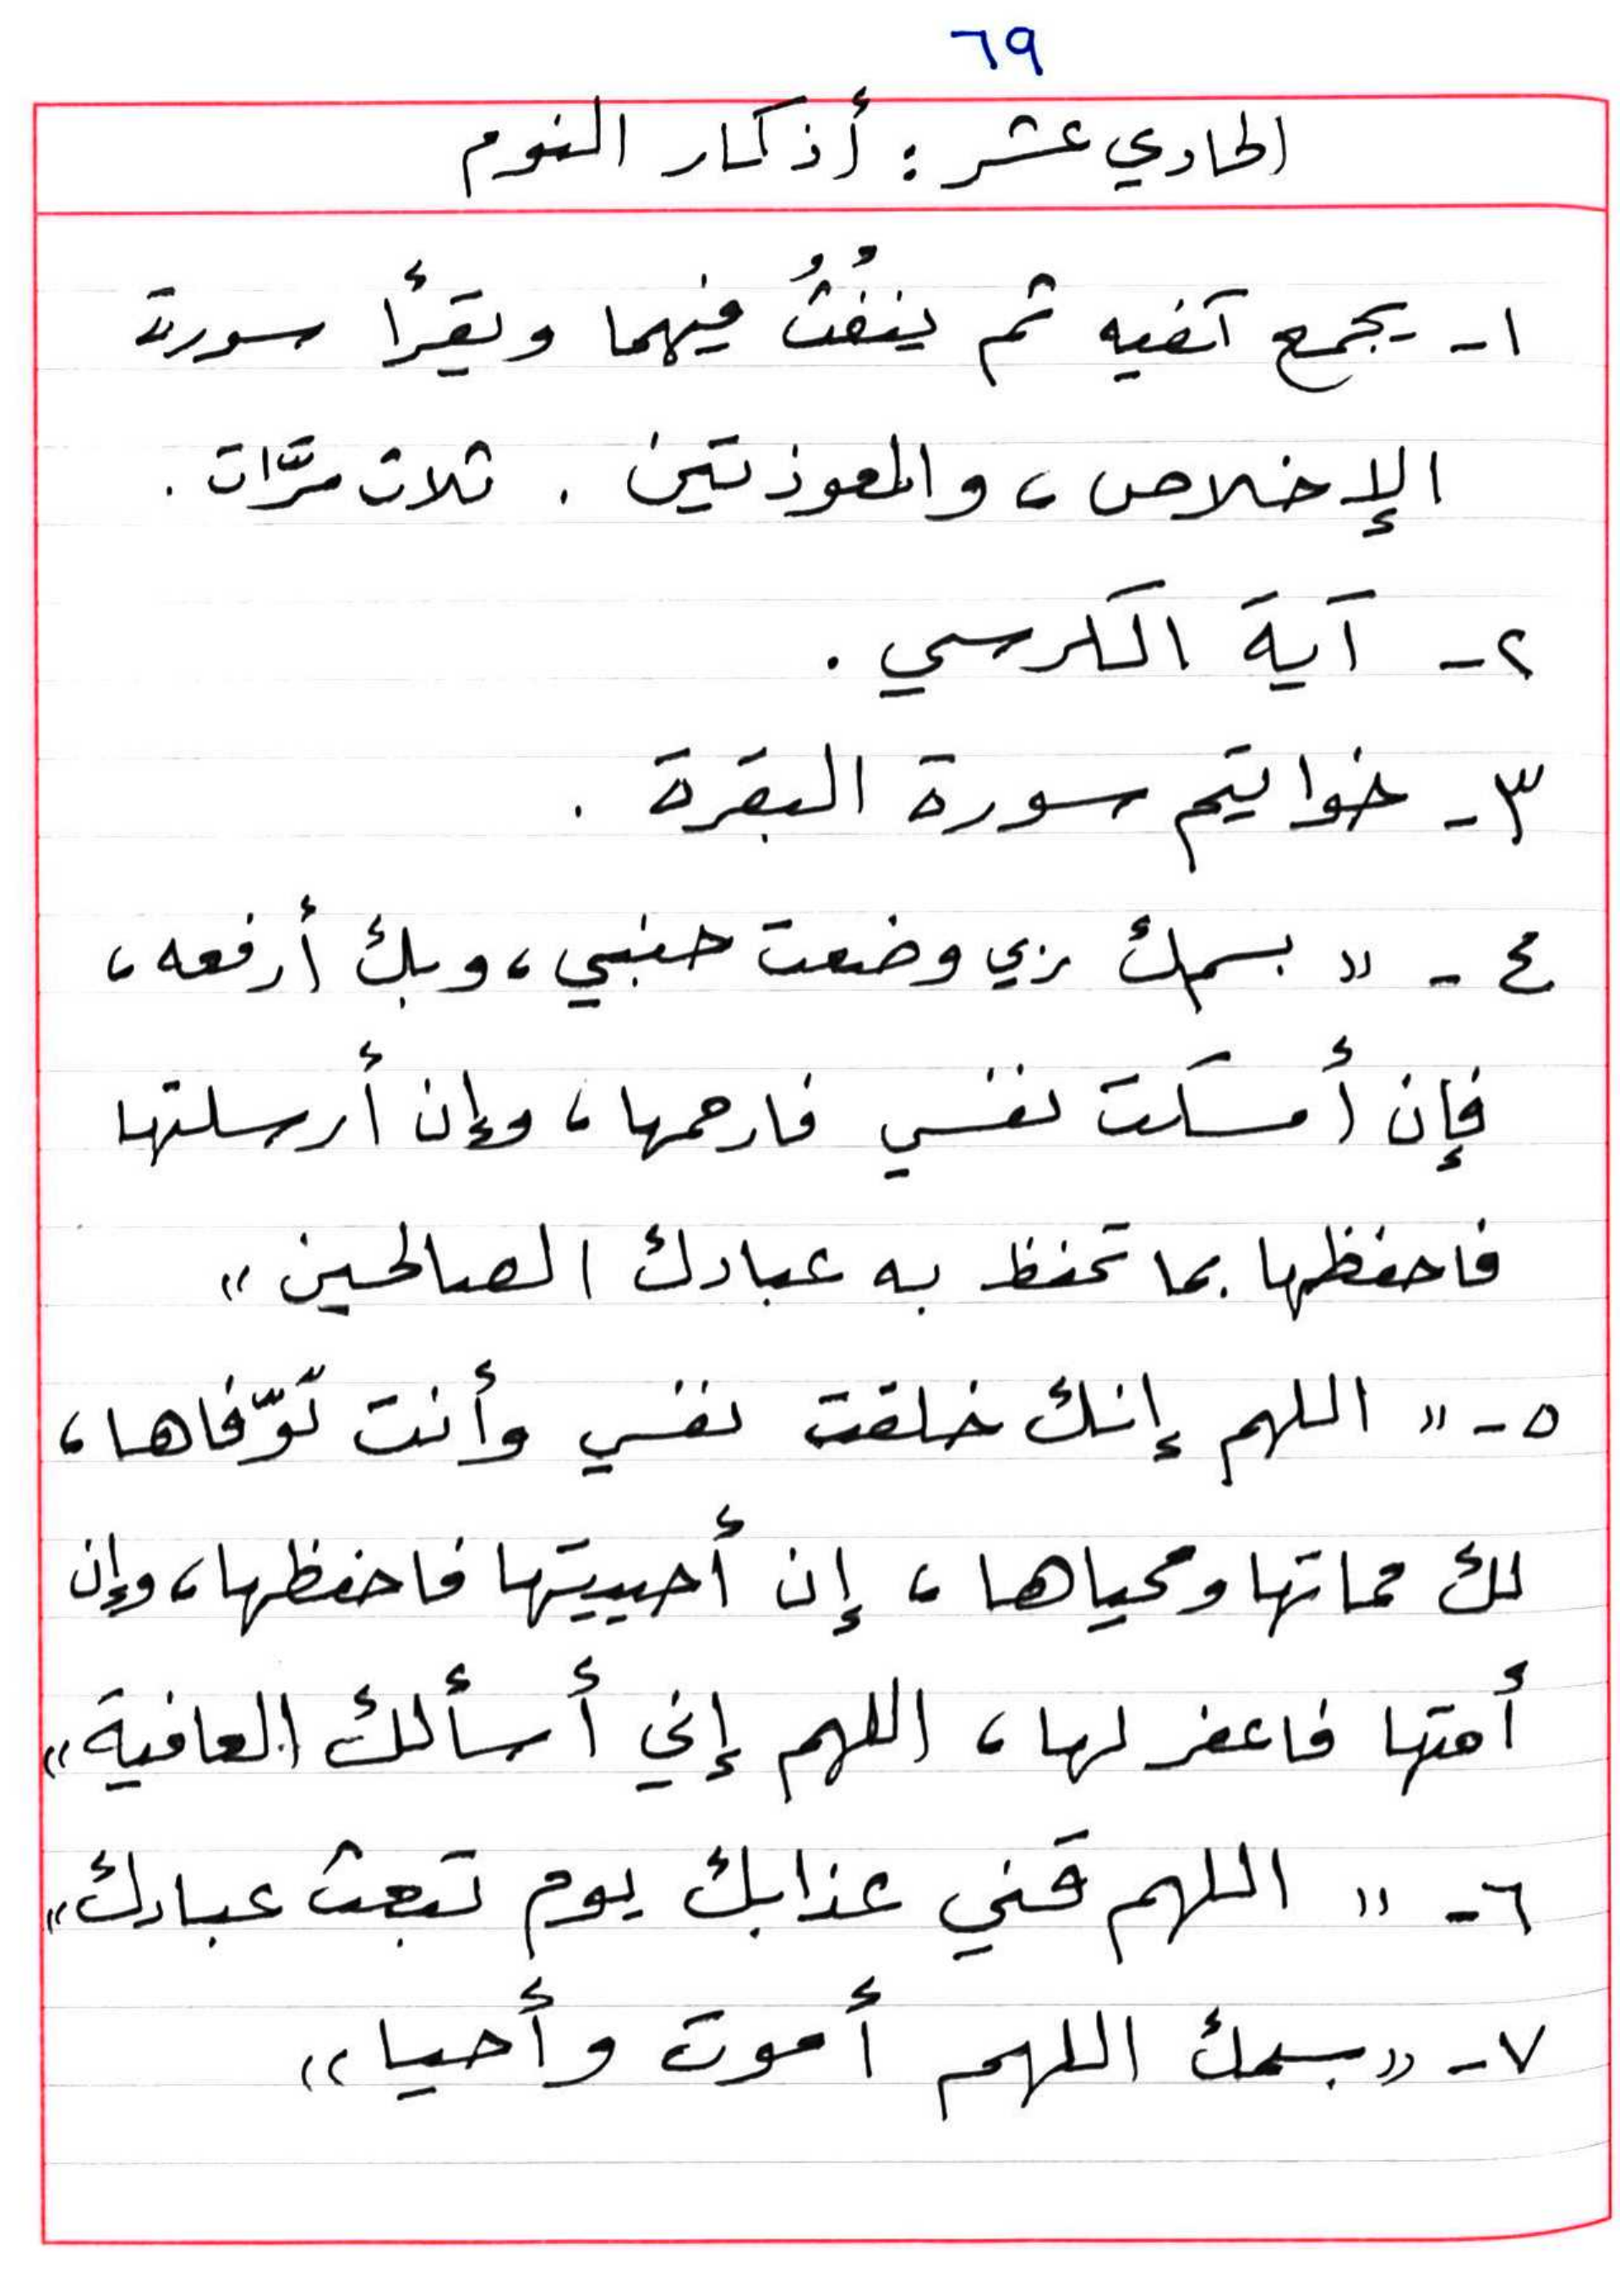 ٦٩
الحادي عشر : أذكار النوم
١- يجمع كفيه ثم ينفُثُ فيهما ويقرأ سورة
الإخلاص ، والمعوذتين . ثلاث مرَّات .
٢- آية الكرسي .
٣- خواتيم سورة البقرة .
٤- « بسمك ربي وضعت جنبي ، وبك أرفعه ،
فإن أمسكت نفسي فارحمها ، وإن أرسلتها
فاحفظها بما تحفظ به عبادك الصالحين »
٥- « اللهم إنك خلقت نفسي وأنت توَّفاها ،
لك مماتها ومحياها ، إن أحييتها فاحفظها ، وإن
أمتها فاغفر لها ، اللهم إني أسألك العافية »
٦- « اللهم قني عذابك يوم تبعث عبادك »
٧- « بسمك اللهم أموت وأحيا »